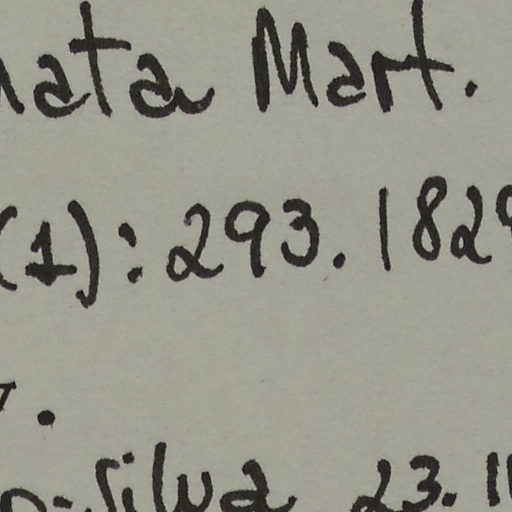 ata Mart.
(1): 293. 182
.
Silva 23.